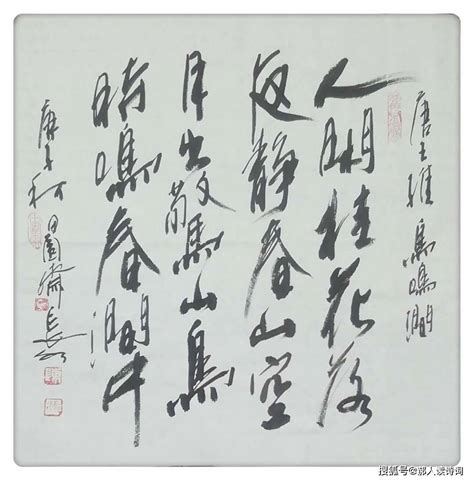 唐王維鳥鳴澗
人閑桂花落
夜静春山空
月出驚山鳥
時鳴春澗中
庚子秋
搜狐号@郝人读诗词